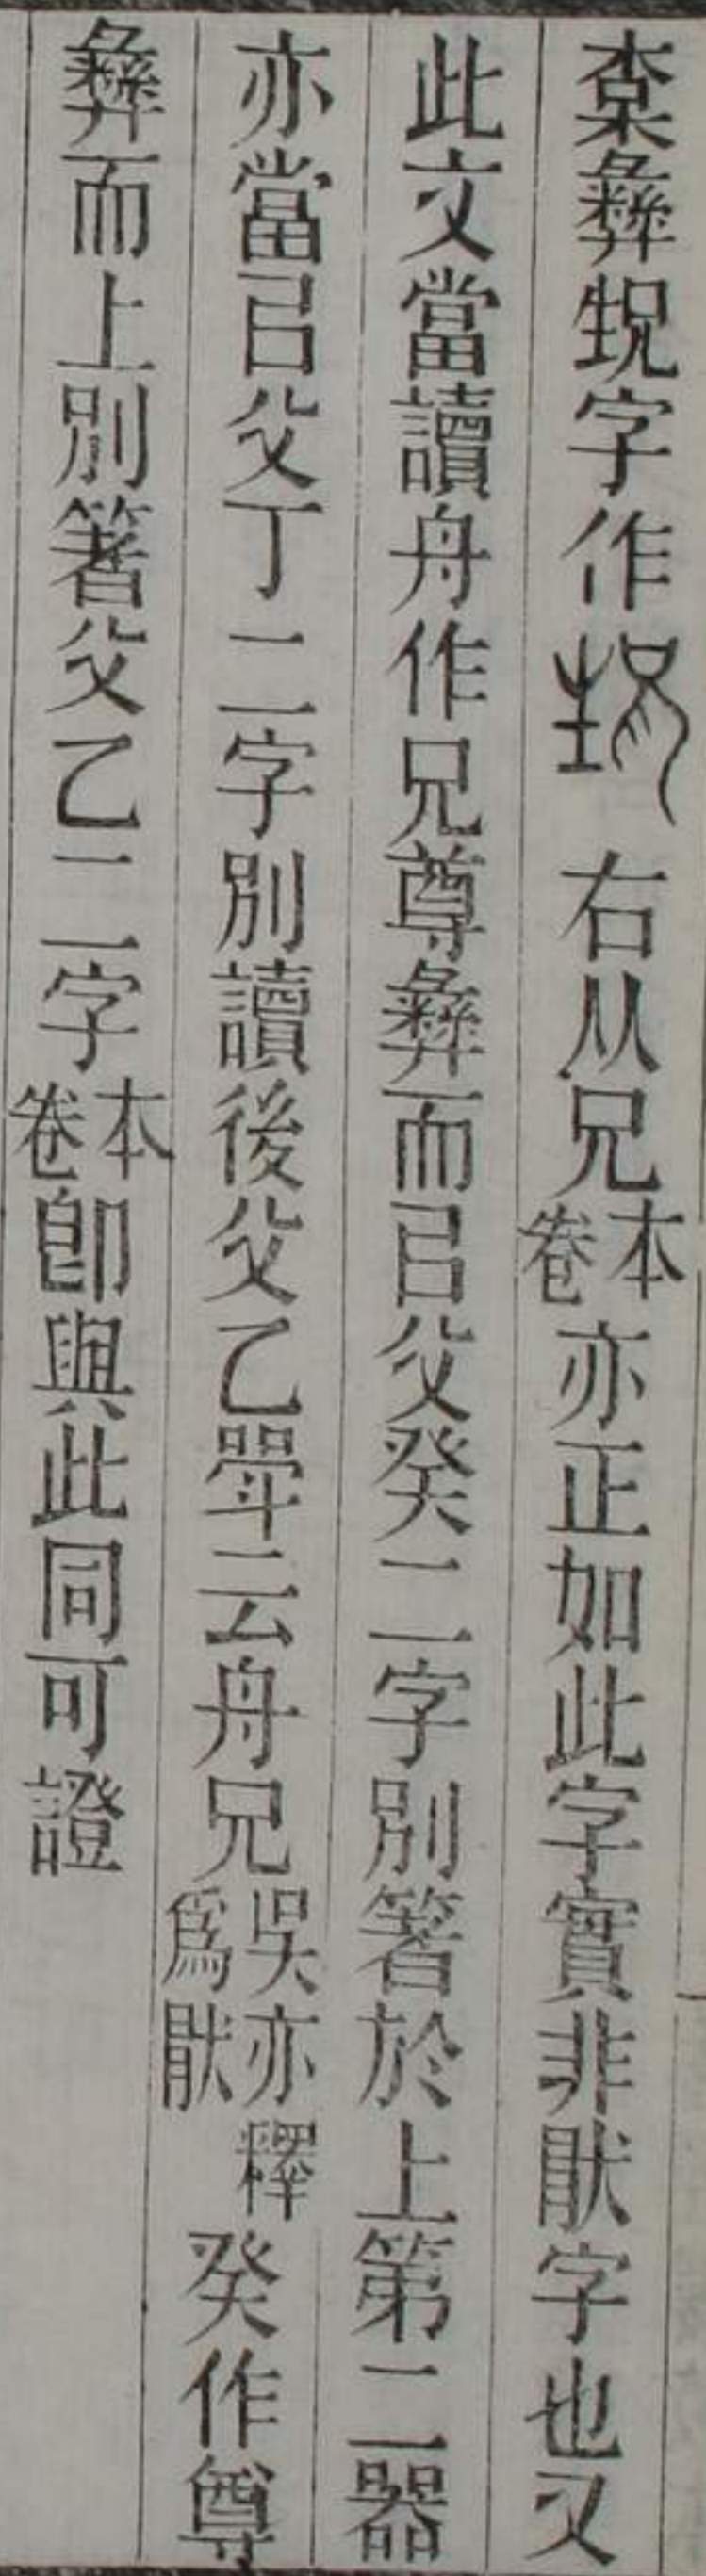 㭉彝㹑字作右从兄本卷亦正如此字實非㹜字也又
此文當讀舟作兄尊彝而㠯父癸二字別箸於上第二器
亦當㠯父丁二字別讀後父乙斝云舟兄吳亦釋爲㹜癸作尊
彝而上別箸父乙二字本卷卽與此同可證